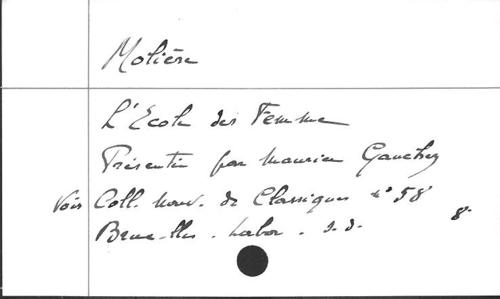 Molière
L'Ecole des Femmes
Présentée par Maurice Gauchez
Voir Coll. nouv. de Classiques n° 58
Bruxelles. Labor. s.d. 8°